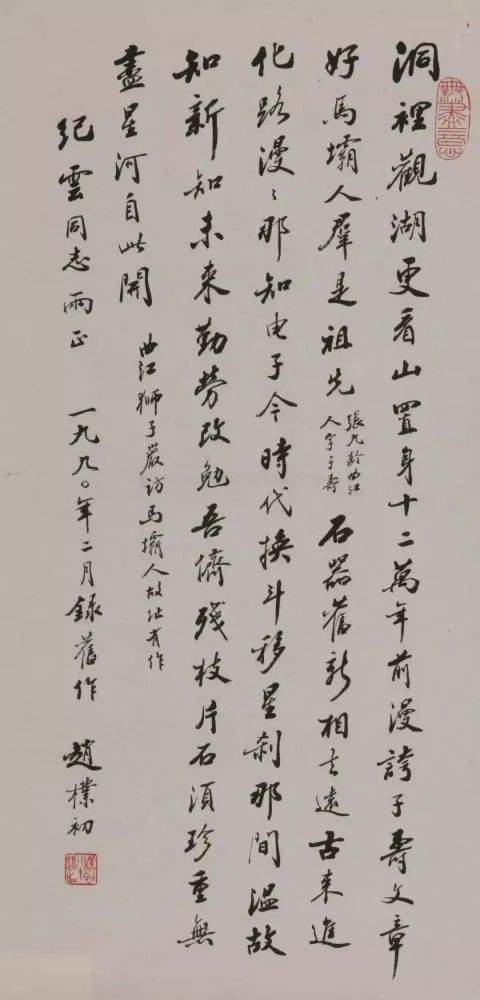 洞裡觀湖更看山置身十二萬年前漫誇子壽文章
好馬壩人羣是祖先
張九齡曲江
人字子壽
石器舊新相去遠古來進
化路漫〻那知电子今時代換斗移星剎那間溫故
知新知未来勤勞改勉吾儕殘枝片石須珍重無
盡星河自此開
曲江獅子巖訪馬壩人故址有作
紀雲同志兩正
一九九〇年二月錄舊作
趙樸初
無盡意